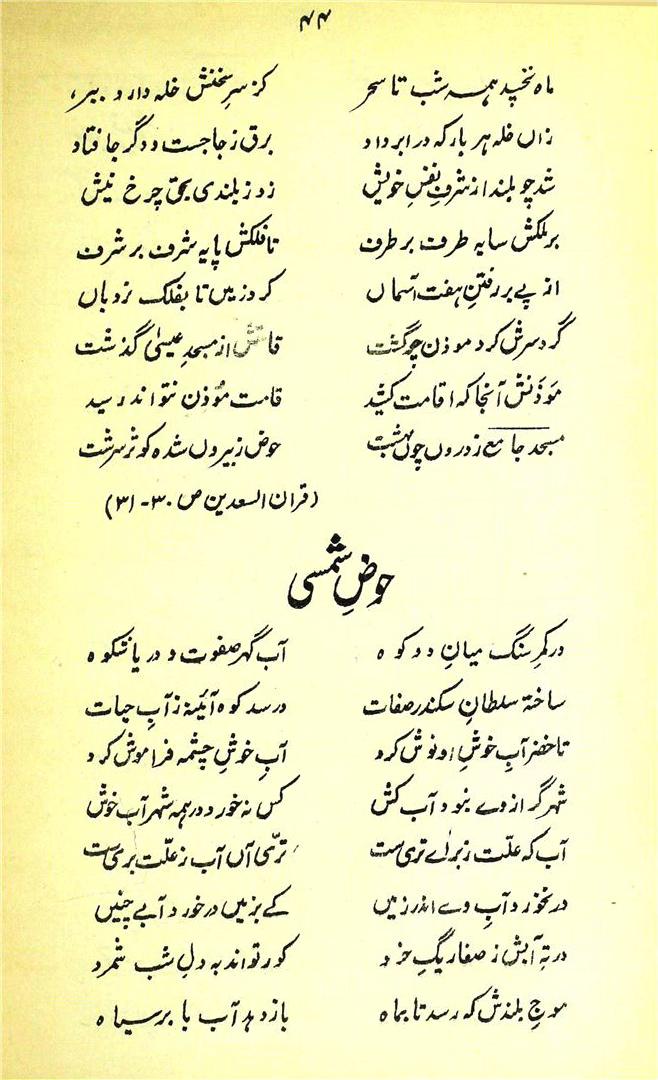 ۴۴
ماه نخسپد همه شب تا سحر کز سرِ سخنش خله دارد ببر،
زاں خله هر بار که در ابر داد برق ز جا جست و دگر جا فتاد
شد چو بلند از شرفِ نفسِ خویش زد ز بلندی بحقِ چرخ نیش
بر ملکش سایه طرف بر طرف تا فلکش پایه شرف بر شرف
از پے بر رفتنِ هفت آسماں کرد زمیں تا بفلک نردباں
گرد سرش کرد موذن چو گشت قامتش از مسجدِ عیسیٰ گذشت
موَذنش آنجا که اقامت کشید قامت مُوذن نتواند رسید
مسجد جامع ز دروں چوں بهشت حوض ز بیروں شده کوثر سرشت
(قران السعدین ص ۳۰-۳۱)
حوضِ شمسی
در کمرِ سنگ میانِ دو کوه آب گهر صفوت و دریا شکوه
ساختهٔ سلطانِ سکندر صفات در سد کوه آئینهٔ ز آبِ حیات
تا خضر آبِ خوشِ او نوش کرد آبِ خوشِ چشمه فراموش کرد
شهر گر از وے بنود آب کش کس نه خورد در همه شهر آب خوش
آب که علّت ز براے تری ست ترّیِ آں آب ز علّت بری ست
در نخورد آبِ وے اندر زمیں کے بزمیں درخورد آبے چنیں
در تهِ آبش ز صفا ریگِ خرد کور تواند به دلِ شب شمرد
موجِ بلندش که رسد تا بماه باز دهد آب با برِ سیاه